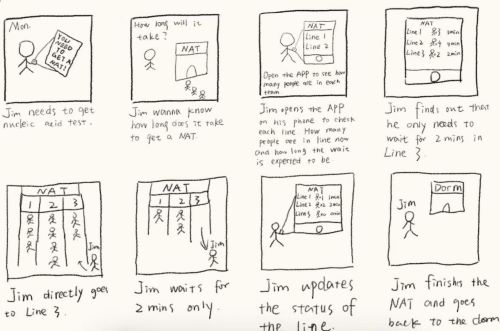 Mon.
YOU
NEED
TO
GET A
NAT!
Jim needs to get
nucleic acid test.
How long will it
take?
NAT
Jim wanna know
how long does it take
to get a NAT.
NAT
Line 1
Line 2
Open the APP to see how
many people are in each
Jim opens the APP
on his phone to check
each line How many
people are in line now
and how long the wait
is expected to be
NAT
Line 1 3 2min
Line 2 4 4min
Line 3 2 2min
Jim finds out that
he only needs to
wait for 2 mins in
Line 3.
NAT
1 2 3
Jim
Jim directly goes
to Line 3.
NAT
1 2 3
Jim
Jim waits for
2 mins only.
NAT
Line 1
Line 2
Line 3
Jim updates
the status of
the line.
Dorm
Jim
Jim finishs the
NAT and goes
back to the dorm